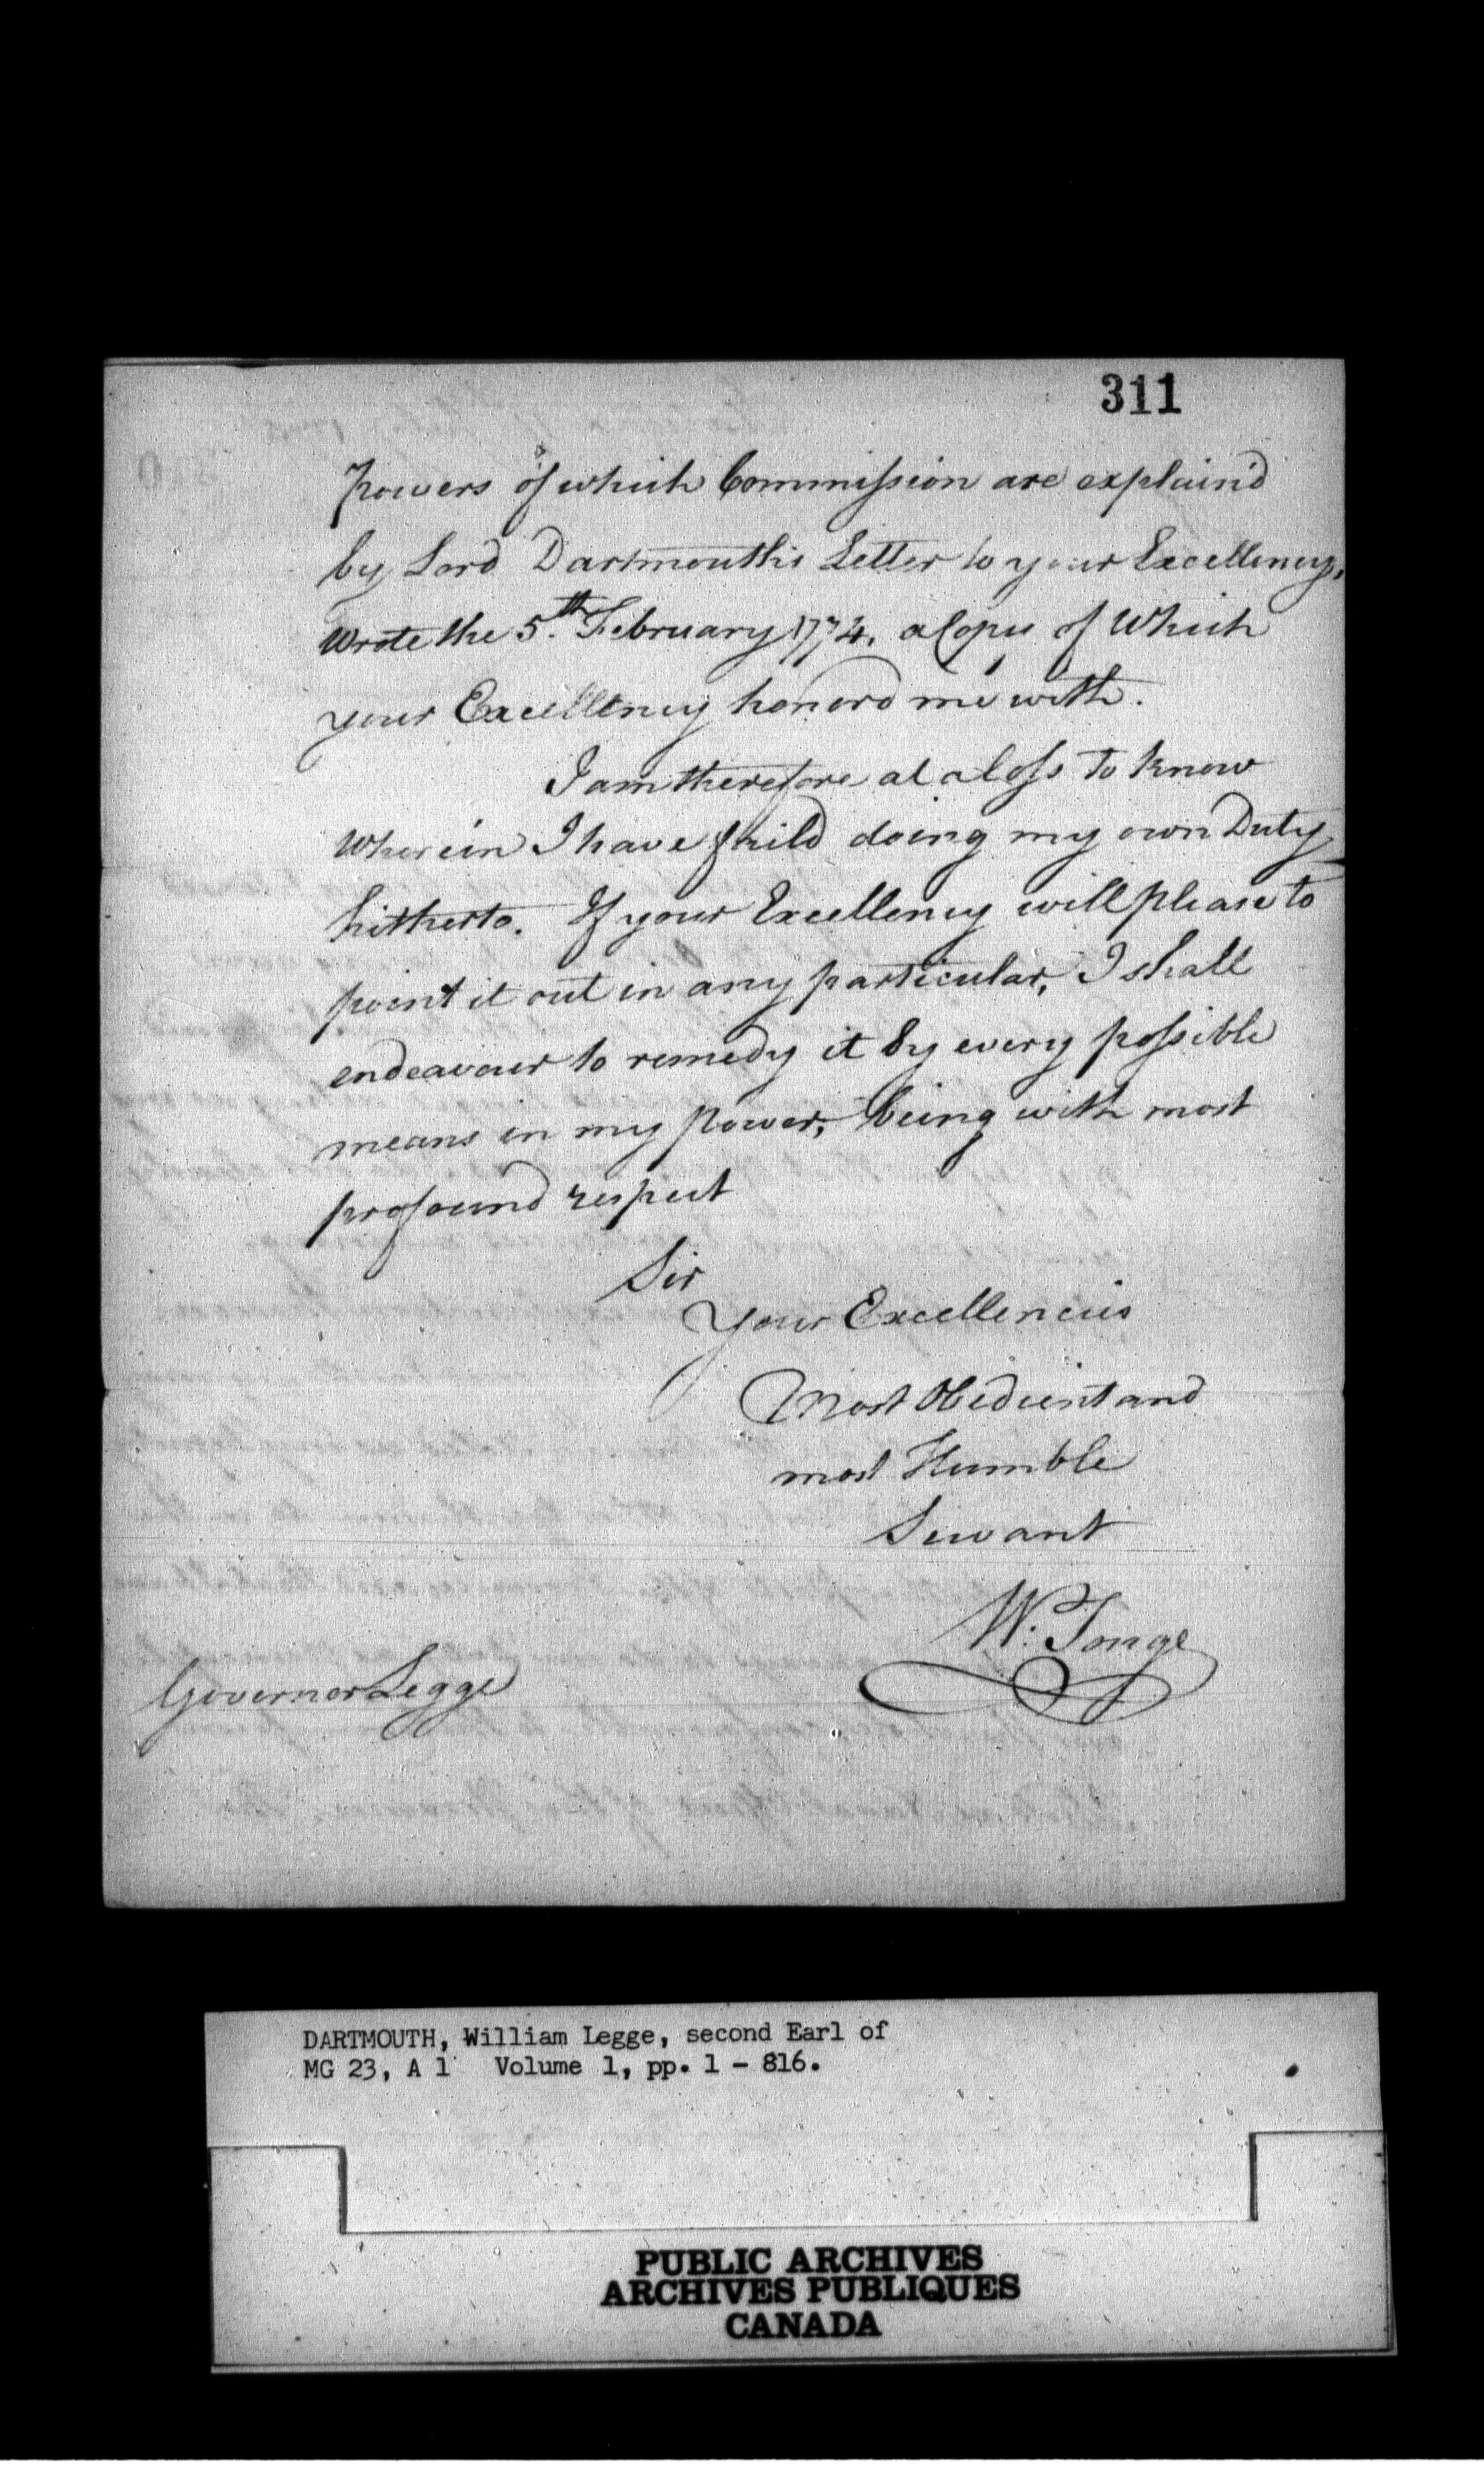 311
Powers of which Commission are explain'd
by Lord Dartmouth's Letter to your Excellency,
Wrote the 5.th February 1774, a Copy of Which
your Excellency honord me with.
I am therefore at a loss to know
Wherein I have faild doing my own Duty
hitherto. If your Excellency will please to
point it out in any particular, I shall
endeavour to remedy it by every possible
means in my power, being with most
profound respect
Sir
Your Excellencies
Most Obedient and
most Humble
Servant
W. Tonge
Governor Legge
DARTMOUTH, William Legge, second Earl of
MG 23, A 1 Volume 1, pp. 1 - 816.
PUBLIC ARCHIVES
ARCHIVES PUBLIQUES
CANADA